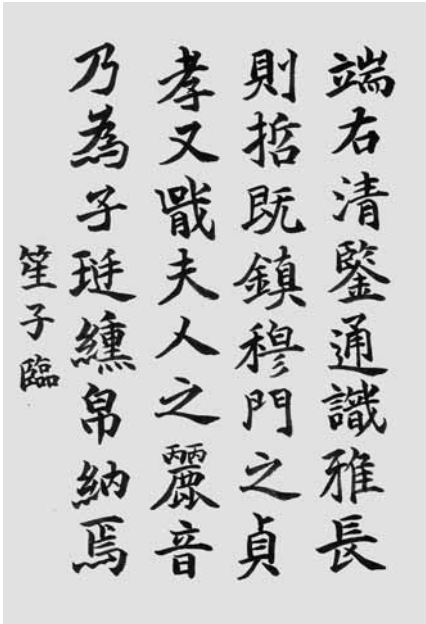 端右清鑒通識雅長
則哲既鎮穆門之貞
孝又戢夫人之麗音
乃為子珽纁帛納焉
笙子臨